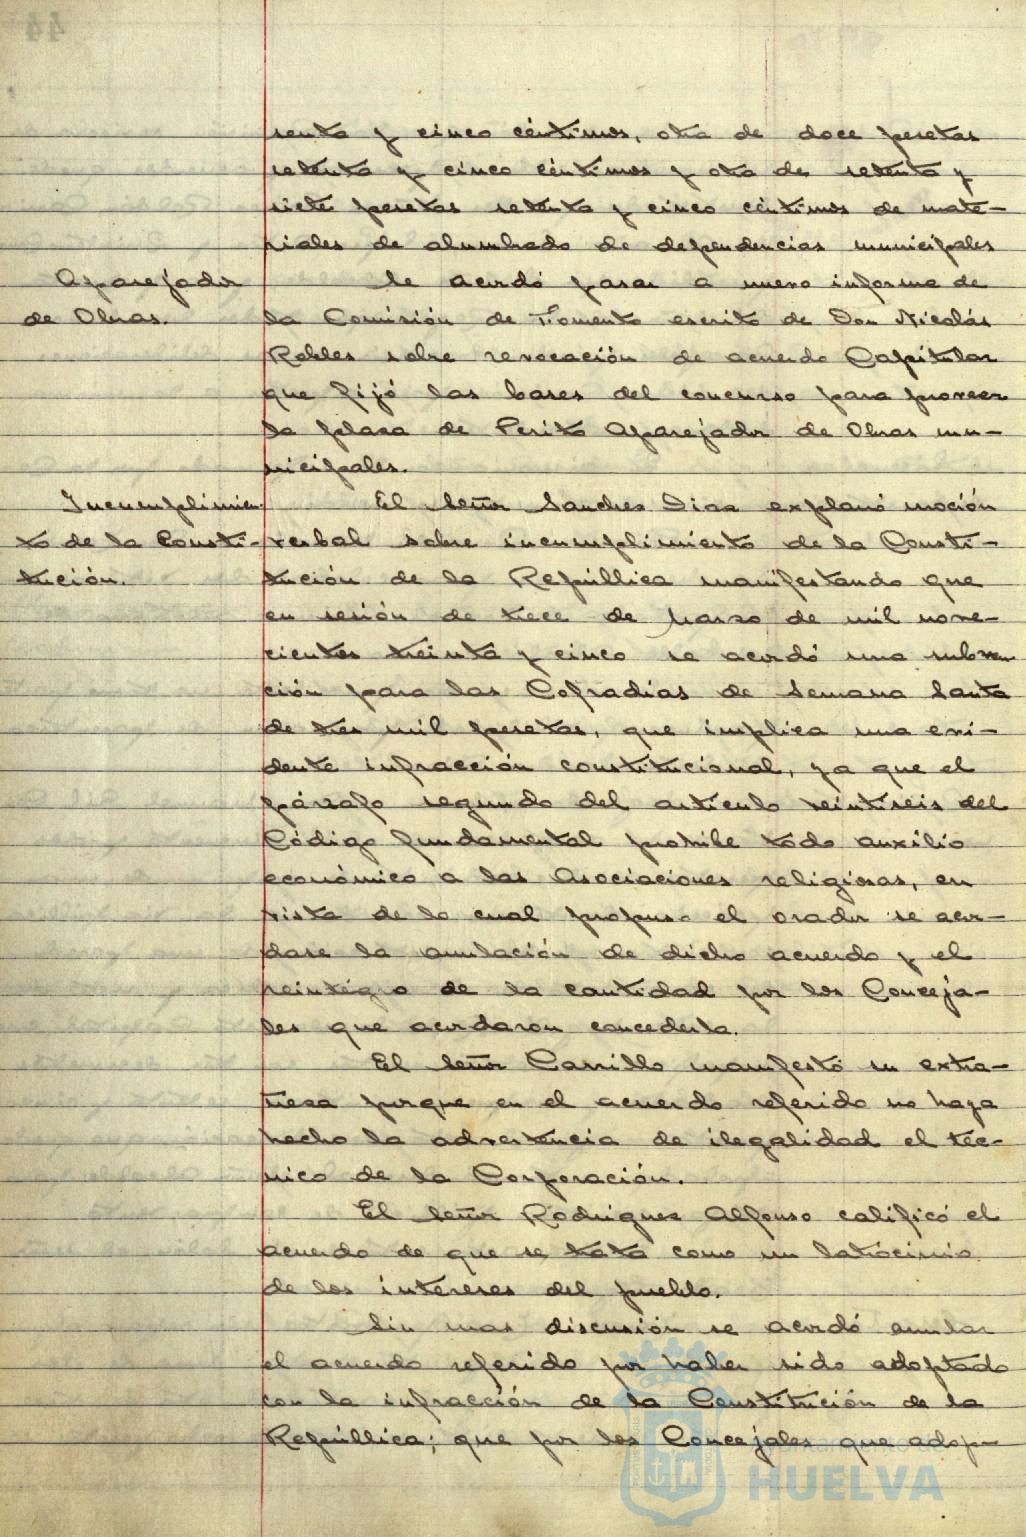 senta y cinco céntimos, otra de doce pesetas
setenta y cinco céntimos y otra de setenta y
siete pesetas setenta y cinco céntimos de mate-
riales de alumbrado de dependencias municipales
Aparejador
de Obras.
Se acordó pasar a nuevo informe de
la Comisión de Fomento escrito de Don Nicolás
Robles sobre revocación de acuerdo Capitular
que fijó las bases del concurso para proveer
la plaza de Perito Aparejador de Obras mu-
nicipales.
Incumplimien-
to de la Consti-
tución.
El Señor Sanchez Diaz explanó moción
verbal sobre incumplimiento de la Consti-
tución de la República manifestando que
en sesión de trece de Marzo de mil nove-
cientos treinta y cinco se acordó una subven
ción para las Cofradías de Semana Santa
de tres mil pesetas, que implica una evi-
dente infracción constitucional, ya que el
párrafo segundo del artículo veintiseis del
Código fundamental prohibe todo auxilio
económico a las Asociaciones religiosas, en
vista de lo cual propuso el orador se acor-
dase la anulación de dicho acuerdo y el
reintegro de la cantidad por los Conceja-
les que acordaron concederla.
El Señor Carrillo manifestó su extra-
ñeza porque en el acuerdo referido no haya
hecho la advertencia de ilegalidad el téc-
nico de la Corporación.
El Señor Rodriguez Alfonso calificó el
acuerdo de que se trata como un latrocinio
de los intereses del pueblo.
Sin mas discusión se acordó anular
el acuerdo referido por haber sido adoptado
con la infracción de la Constitución de la
República; que por los Concejales que adop-
HUELVA